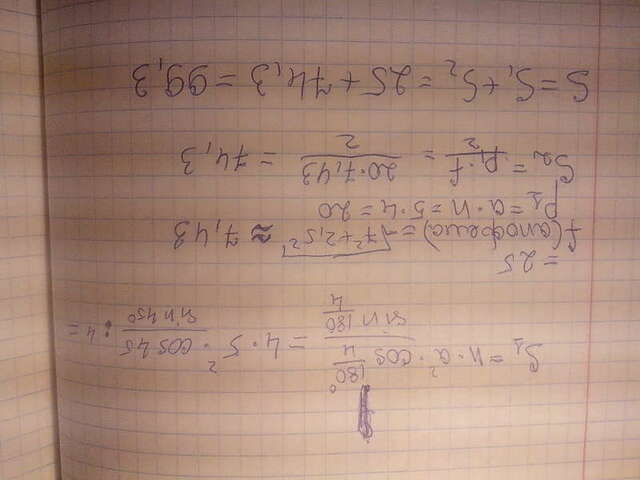 S₁ = n · a² · cos 180°/4 / sin 180/4 = 4 · 5² · cos 45 / sin 450 : 4 =
= 25
f(апофема) = √7² + 2,5² ≈ 7,43
p₁ = a · n = 5 · 4 = 20
S₂ = p₁ · f / 2 = 20 · 7,43 / 2 = 74,3
S = S₁ + S₂ = 25 + 74,3 = 99,3